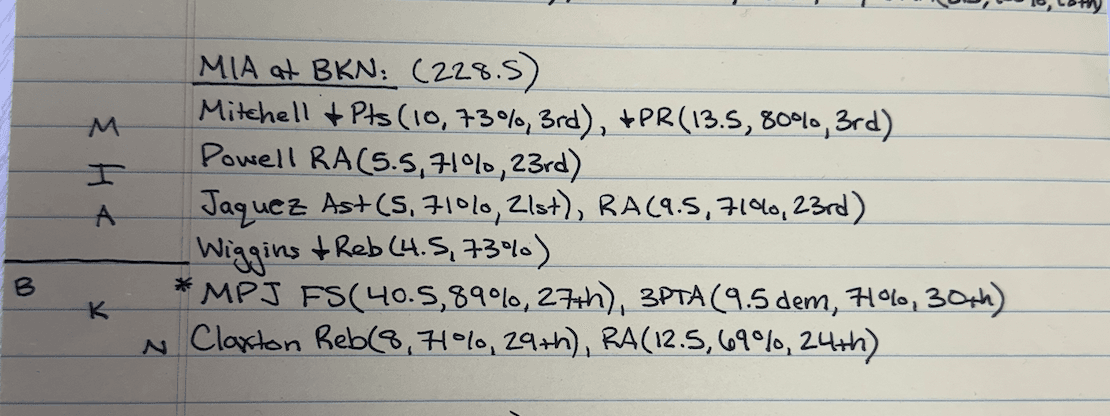 MIA at BKN: (228.5)
M Mitchell ↓ Pts (10, 73%, 3rd), ↓PR (13.5, 80%, 3rd)
I Powell RA (5.5, 71%, 23rd)
A Jaquez Ast (5, 71%, 21st), RA (9.5, 71%, 23rd)
Wiggins ↓ Reb (4.5, 73%)
B K * MPJ FS (40.5, 89%, 27th), 3PTA (9.5 dem, 71%, 30th)
N Claxton Reb (8, 71%, 29th), RA (12.5, 69%, 24th)